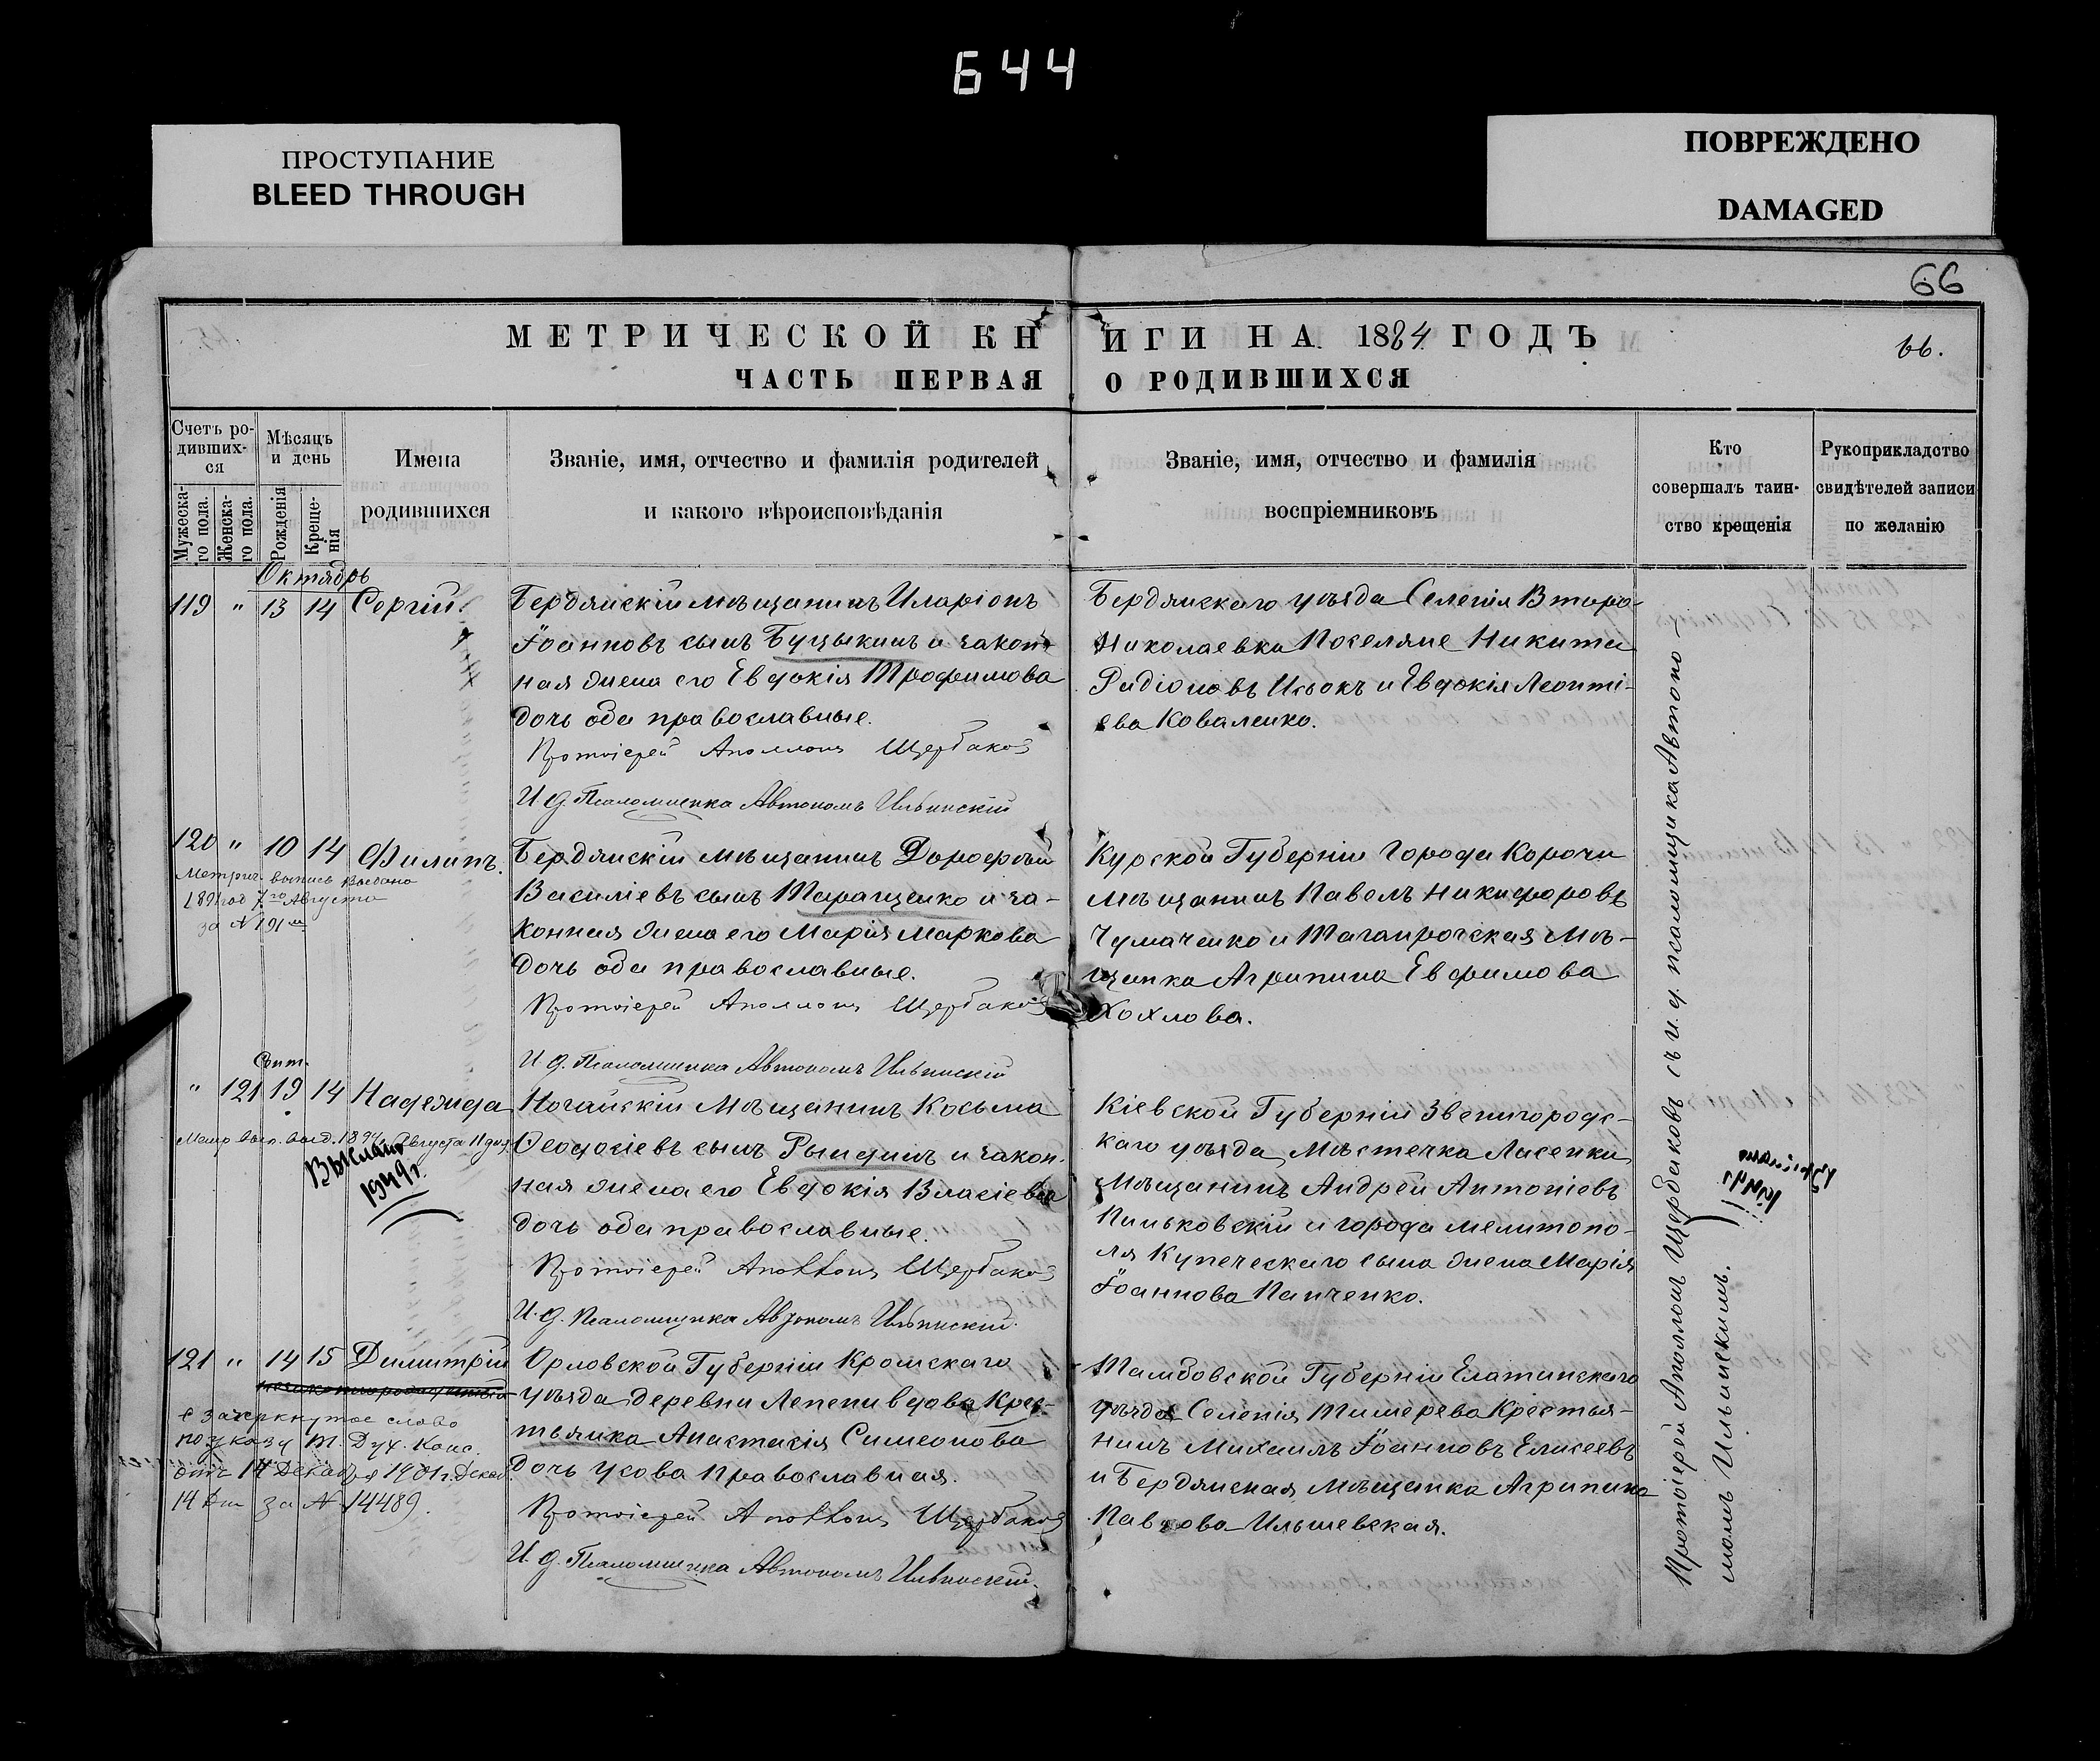 644
ПРОСТУПАНИЕ
BLEED THROUGH
ПОВРЕЖДЕНО
DAMAGED
66
МЕТРИЧЕСКОЙ КНИГИ НА 1884 ГОДЪ
66.
ЧАСТЬ ПЕРВАЯ О РОДИВШИХСЯ
Счетъ ро-
дивших-
ся
Мужеска-
го пола.
Женска-
го пола.
Мѣсяцъ
и день
Рожденія
Креще-
нія
Имена
родившихся
Званіе, имя, отчество и фамилія родителей
и какого вѣроисповѣданія
Званіе, имя, отчество и фамилія
воспріемниковъ
Кто
совершалъ таин-
ство крещенія
Рукоприкладство
свидѣтелей записи
по желанію
Октябрь
119 " 13 14 Сергій
Бердянскій мѣщанинъ Иларіонъ
Іоанновъ сынъ Буцыкинъ и закон-
ная жена его Евдокія Трофимова
дочь оба православные.
Протоіерей Аполлонъ Щербаковъ
И. д. Псаломщика Автономъ Ильинскій
Бердянскаго уѣзда Селенія Второ-
Николаевка Поселяне Никита
Радіоновъ и Евдокія Леонті-
ева Коваленко.
120 " 10 14 Филипъ.
Метрич. выпись выдана
189 год 7го Августа
за N 191
Бердянскій мѣщанинъ Дорофей
Василіевъ сынъ Таращенко и за-
конная жена его Марія Маркова
дочь оба православные.
Протоіерей Аполлонъ Щербаковъ
И. д. Псаломщика Автономъ Ильинскій
Курской Губерніи Города Корочи
мѣщанинъ Павелъ Никифоровъ
Чумаченко и Таганрогская мѣ-
щанка Агрипина Евфимова
Хохлова.
Сент.
" 121 19 14 Надежда
Метр. вып. выд. 1894 Августа 11 дня
1949г.
Ногайскій мѣщанинъ Косьма
Ѳеодосіевъ сынъ Рындинъ и закон-
ная жена его Евдокія Власіева
дочь оба православные.
Протоіерей Аполлонъ Щербаковъ
И. д. Псаломщика Автономъ Ильинскій
Кіевской Губерніи Звенигородс-
каго уѣзда, Мѣстечка Лисенки
мѣщанинъ Андрей Антоніевъ
Пиньковскій и города Мелитопо-
ля Купеческаго сына жена Марія
Іоаннова Панченко.
121 " 14 15 Димитрій
незаконнорожденный
зачеркнутое слово
по указу Т. Дух. Конс.
отъ 14 Декабря 1901г. Декаб.
14 дня за N 14489.
Орловской Губерніи Кромскаго
уѣзда деревни Крес-
тьянка Анастасія Симеонова
дочь Усова православная.
Протоіерей Аполлонъ Щербаковъ
И. д. Псаломщика Автономъ Ильинскій
Тамбовской Губерніи Елатинскаго
уѣзда Селенія Тимерева Крестья-
нинъ Михаилъ Іоанновъ Елисеевъ
и Бердянская мѣщанка Агрипина
Павлова Ильшевская.
Протоіерей Аполлонъ Щербаковъ съ и. д. псаломщика Автоно-
момъ Ильинскимъ.